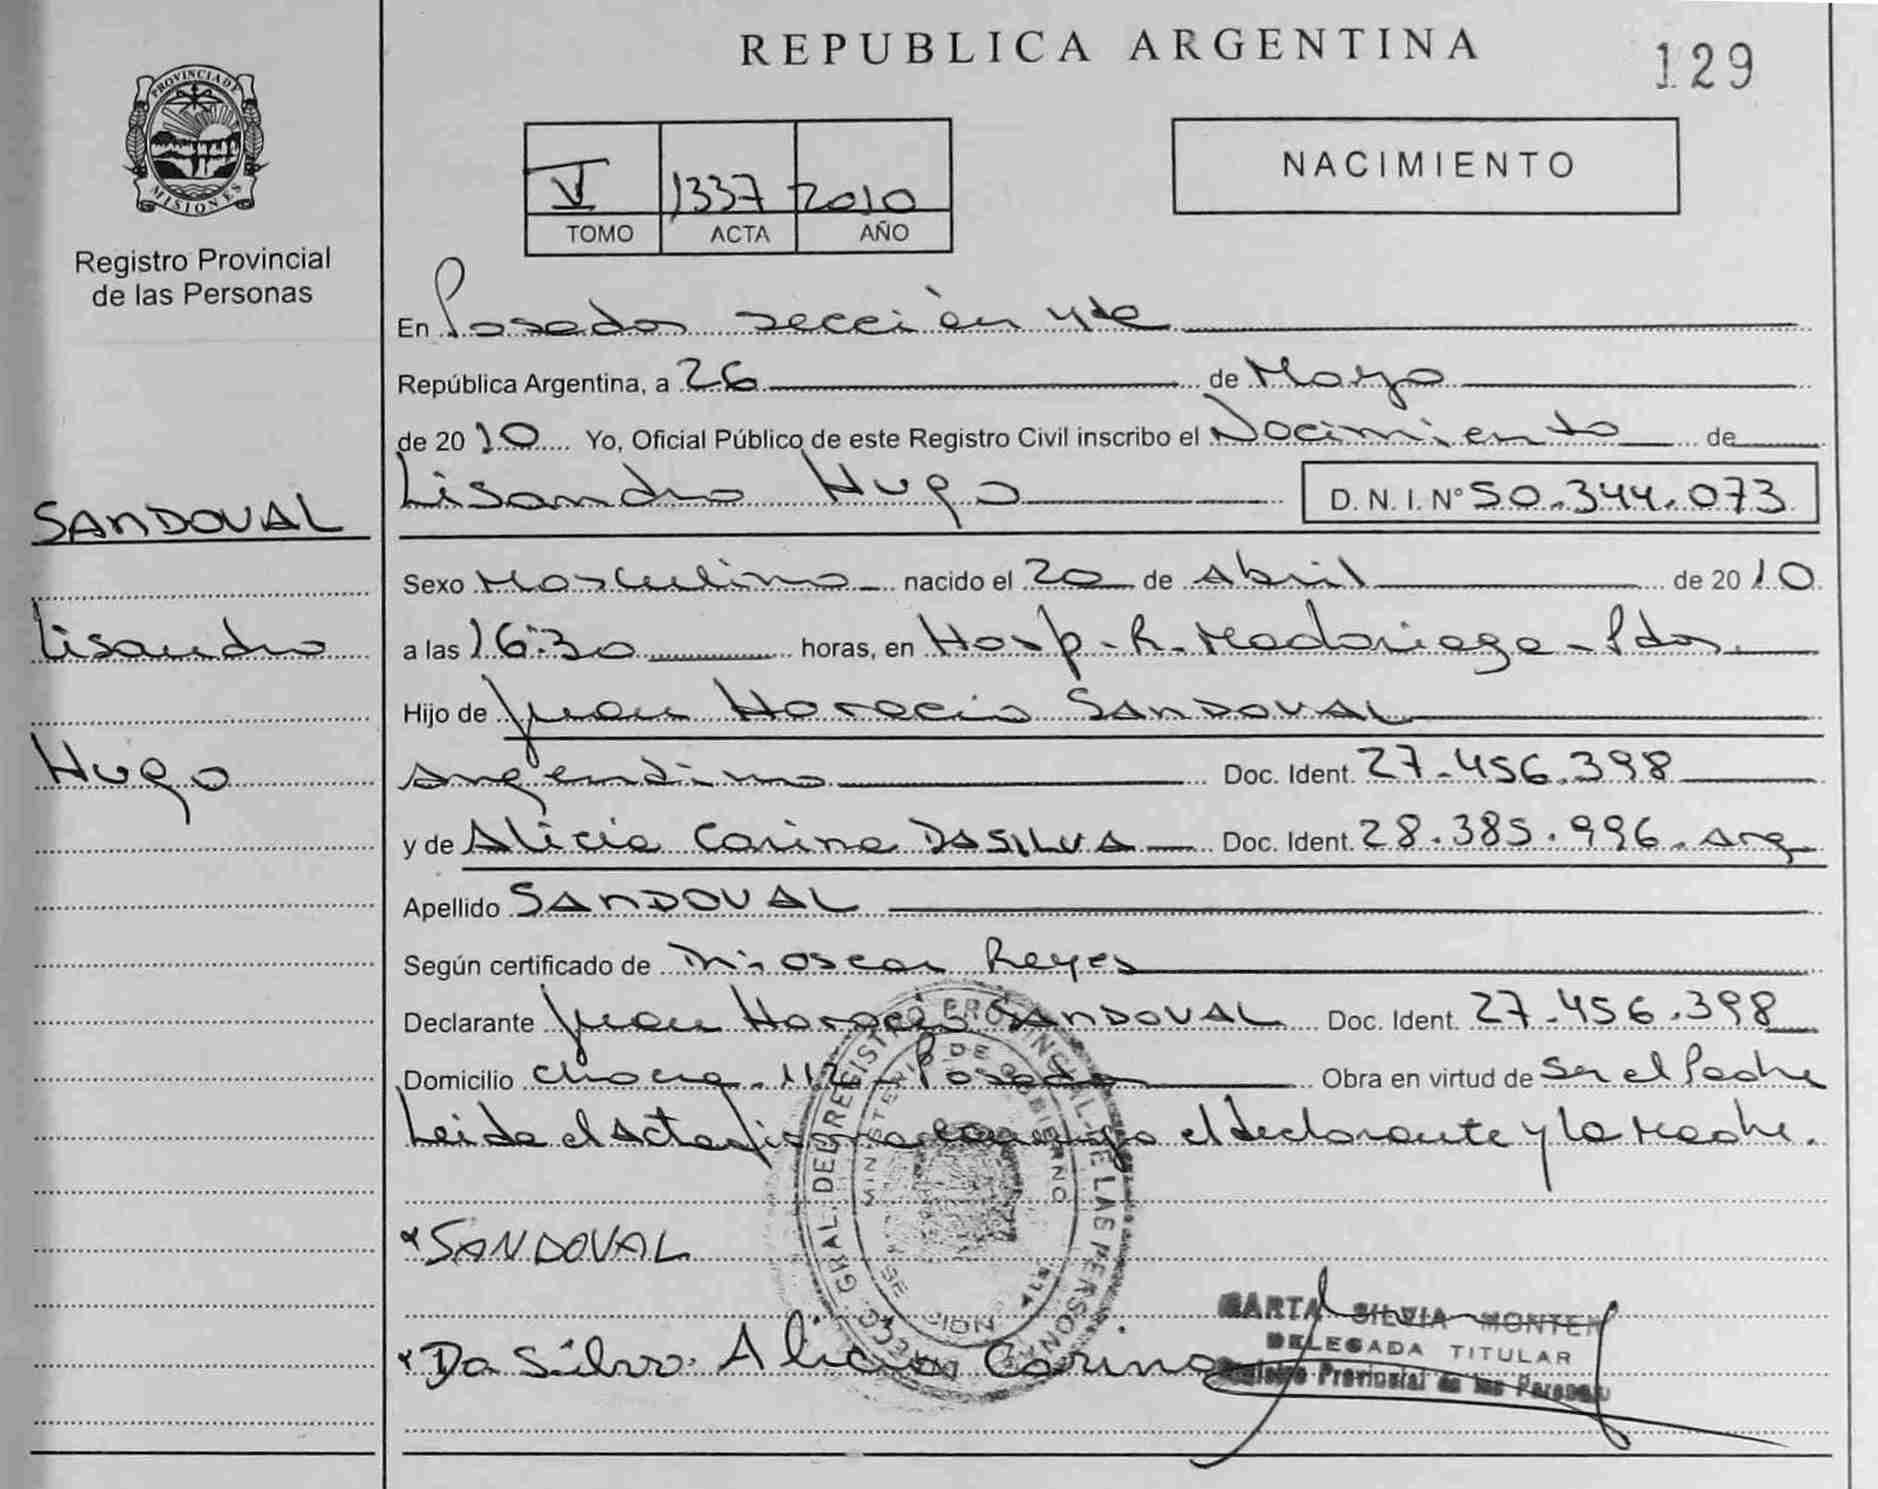 PROVINCIA DE
MISIONES
Registro Provincial
de las Personas
SANDOVAL
Lisandro
Hugo
REPUBLICA ARGENTINA
129
V 1337 2010
TOMO ACTA AÑO
NACIMIENTO
En Posadas sección 4ta
República Argentina, a 26 de Mayo
de 2010 Yo, Oficial Público de este Registro Civil inscribo el Nacimiento de
Lisandro Hugo D. N. I. N° 50.344.073
Sexo Masculino nacido el 20 de Abril de 2010
a las 16:30 horas, en Hosp. R. Madariaga - Pdas.
Hijo de Juan Horacio SANDOVAL
Argentino Doc. Ident. 27.456.398
y de Alicia Carina DA SILVA Doc. Ident. 28.385.996. Arg
Apellido SANDOVAL
Según certificado de Dr. Oscar Reyes
Declarante Juan Horacio SANDOVAL Doc. Ident. 27.456.398
Domicilio chacra. 112 - Posadas Obra en virtud de Ser el Padre
Leida el Acta firman conmigo el declarante y la Madre.
SANDOVAL
Da Silva. Alicia Carina
SILVIA MONTEN
DELEGADA TITULAR
Registro Provincial de las Personas
GRAL. DEL REGISTRO PROVINCIAL DE LAS PERSONAS
MINISTERIO DE GOBIERNO